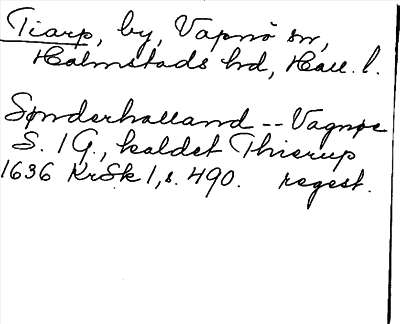 Tiarp, by, Vapnö sn,
Halmstads hrd, Hall. l.
Sønderhalland -- Vagnøe
S. 1 G., kaldet Thierup
1636 KrSk 1, s. 490. regest.